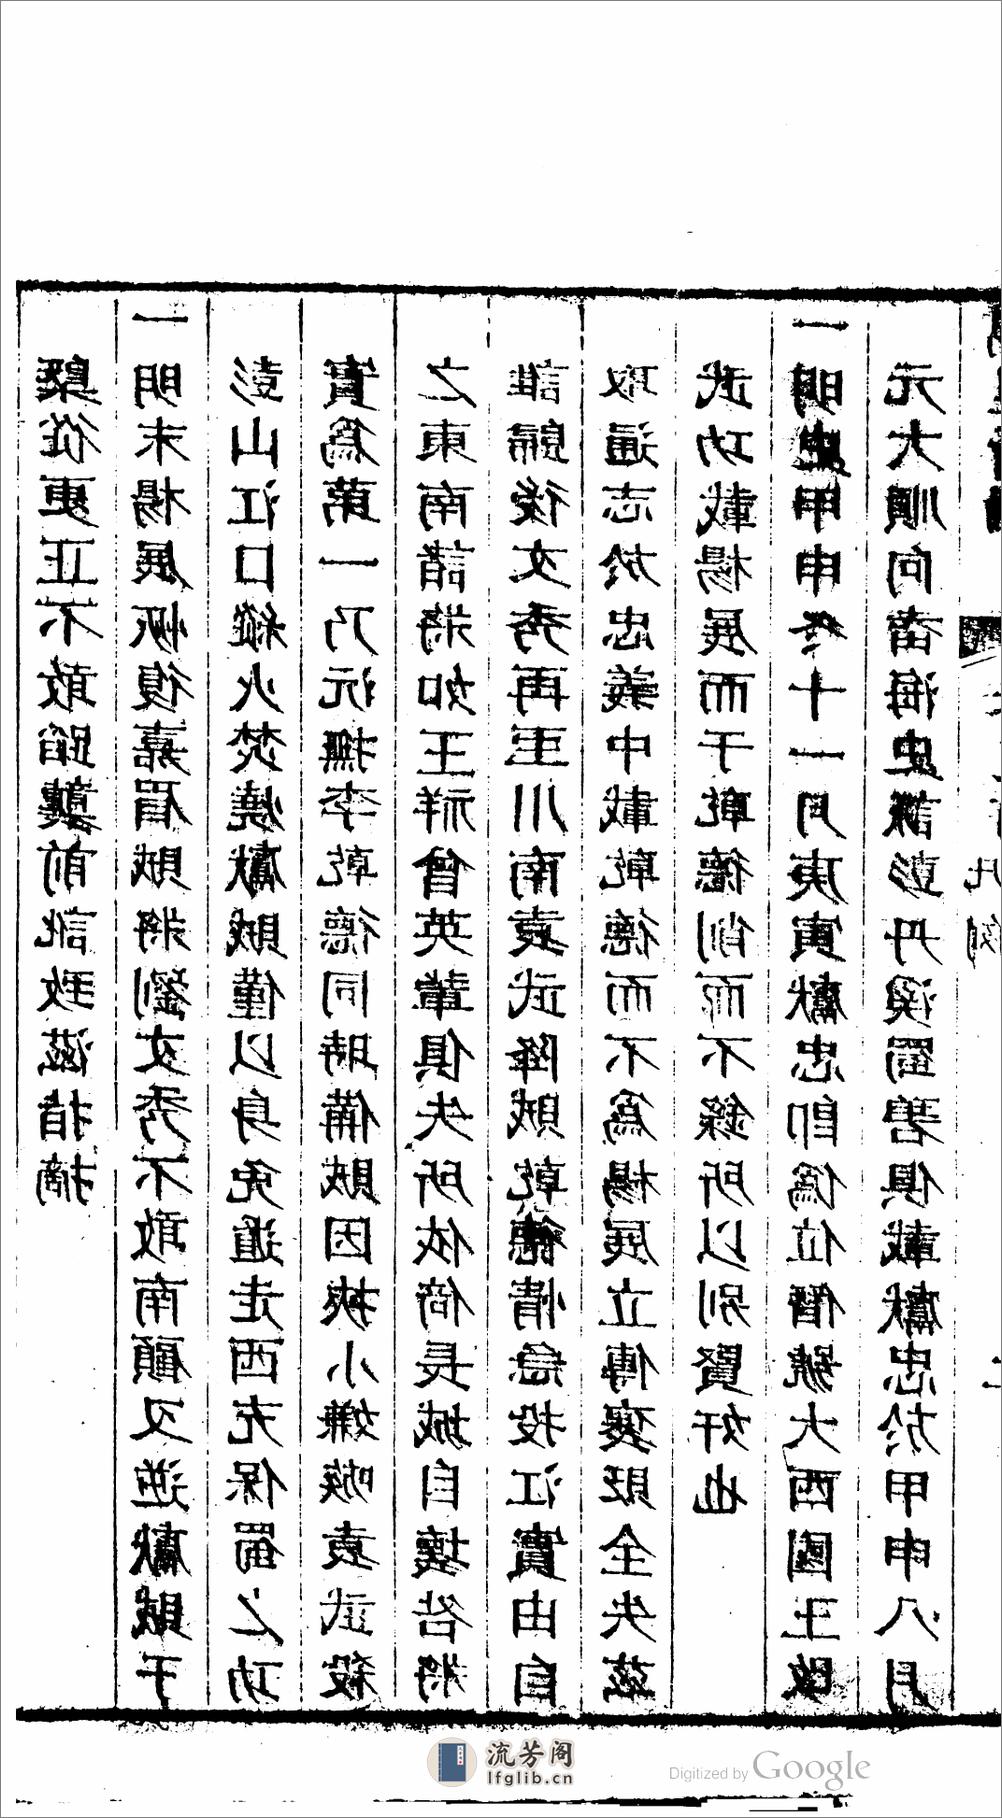 槩從更正不敢蹈襲前訛致滋指摘
一明末楊展恢復嘉眉賊將劉文秀不敢南顧又逆獻賊于
彭山江口縱火焚燒獻賊僅以身免遁走西充保蜀之功
實爲第一乃沅撫李乾德同時備賊因挾小嫌嗾袁武殺
之東南諸將如王祥曾英輩俱失所依倚長城自壞咎將
誰歸後文秀再至川南袁武降賊乾德情急投江實由自
取通志於忠義中載乾德而不爲楊展立傳褒貶全失茲
武功載楊展而于乾德削而不錄所以別賢奸也
一明史甲申冬十一月庚寅獻忠卽僞位僭號大西國王改
元大順向海史彭丹溪蜀碧俱載獻忠於甲申八月
凡例
流芳阁
lfglib.cn
Digitized by Google